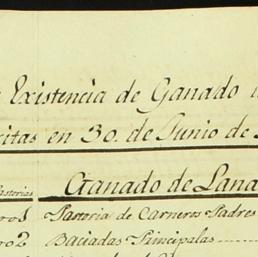 Existencia de Ganado
citas en 30. de Junio de
Pastorias Ganado de Lana
ro 1 Pastoria de Carneros Padres
ro 2 Baciadas Principalas